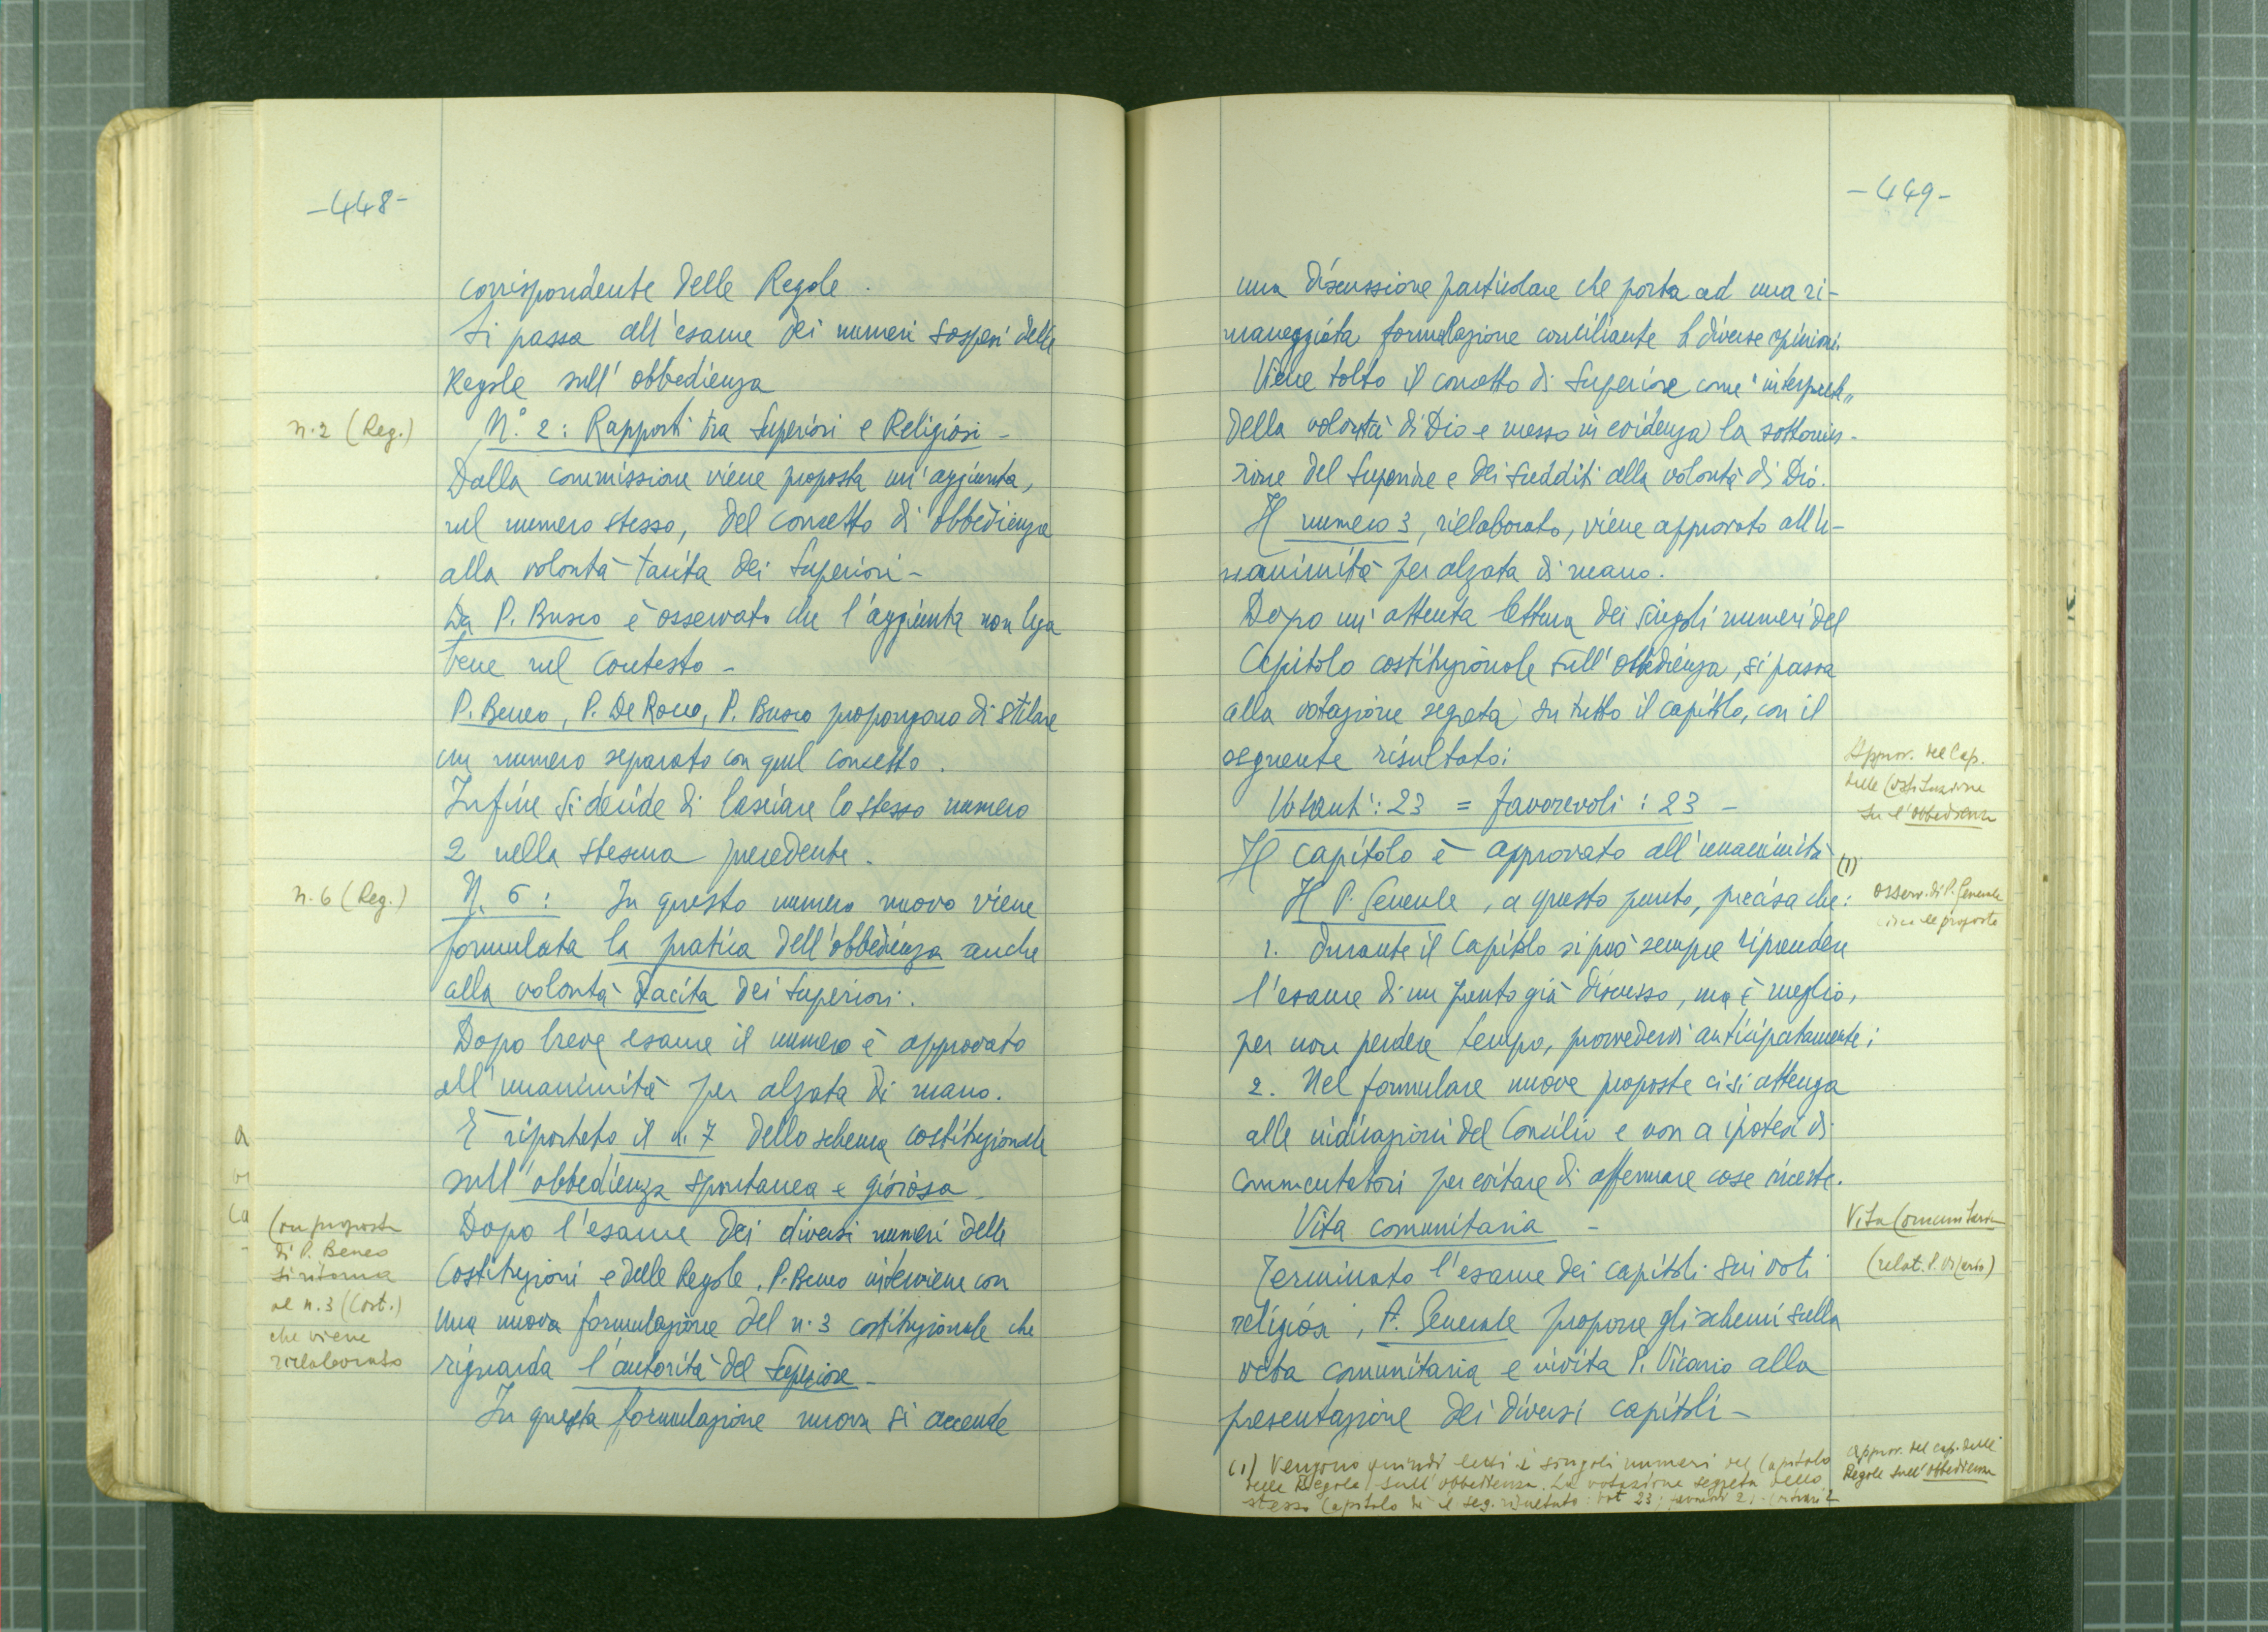 -448-
corrispondente delle Regole.
Si passa all'esame dei numeri sospesi delle
Regole sull'obbedienza
n.2 (Reg.)
N.° 2: Rapporti tra Superiori e Religiosi -
Dalla commissione viene proposta un'aggiunta,
nel numero stesso, del concetto di obbedienza
alla volontà tacita dei Superiori -
Da P. Busco è osservato che l'aggiunta non lega
bene nel contesto -
P. Beneo, P. De Rocco, P. Busco propongono di stilare
un numero separato con quel concetto.
Infine si decide di lasciare lo stesso numero
2 nella stesura precedente.
n.6 (Reg.)
N. 6: In questo numero nuovo viene
formulata la pratica dell'obbedienza anche
alla volontà tacita dei Superiori.
Dopo breve esame il numero è approvato
all'unanimità per alzata di mano.
È riportato il n. 7 dello schema costituzionale
sull'obbedienza spontanea e gioiosa -
Dopo l'esame dei diversi numeri delle
Costituzioni e delle Regole, P. Beneo interviene con
una nuova formulazione del n. 3 costituzionale che
riguarda l'autorità del Superiore -
In questa formulazione nuova si accende
(su proposta
di P. Beneo
si ritorna
al n. 3 (Cost.)
che viene
rielaborato
-449-
una discussione particolare che porta ad una ri-
maneggiata formulazione conciliante le diverse opinioni.
Viene tolto il concetto di Superiore come "interprete"
della volontà di Dio e messo in evidenza la sottomis-
sione del Superiore e dei sudditi alla volontà di Dio.
Il numero 3, rielaborato, viene approvato all'u-
nanimità per alzata di mano.
Dopo un'attenta lettura dei singoli numeri del
Capitolo costituzionale sull'obbedienza, si passa
alla votazione segreta su tutto il capitolo, con il
seguente risultato:
Votanti: 23 = favorevoli: 23 -
Approv. del Cap.
delle Costituzione
su l'obbedienza
Il capitolo è approvato all'unanimità (1)
Il P. Generale, a questo punto, precisa che:
osserv. di P. Generale
circa le proposte
1. Durante il Capitolo si può sempre riprendere
l'esame di un punto già discusso, ma è meglio,
per non perdere tempo, provvedervi anticipatamente;
2. Nel formulare nuove proposte ci si attenga
alle indicazioni del Concilio e non a ipotesi di
commentatori per evitare di affermare cose incerte.
Vita comunitaria -
Vita Comunitaria
(relat. P. Vicario)
Terminato l'esame dei capitoli sui voti
religiosi, P. Generale propone gli schemi sulla
vita comunitaria e invita P. Vicario alla
presentazione dei diversi capitoli -
(1) Vengono quindi letti i singoli numeri del Capitolo
delle Regole sull'obbedienza. La votazione segreta dello
stesso Capitolo dà il seg. risultato: vot 23; favorevoli 21; contrari 2
Approv. del cap. delle
Regole sull'obbedienza